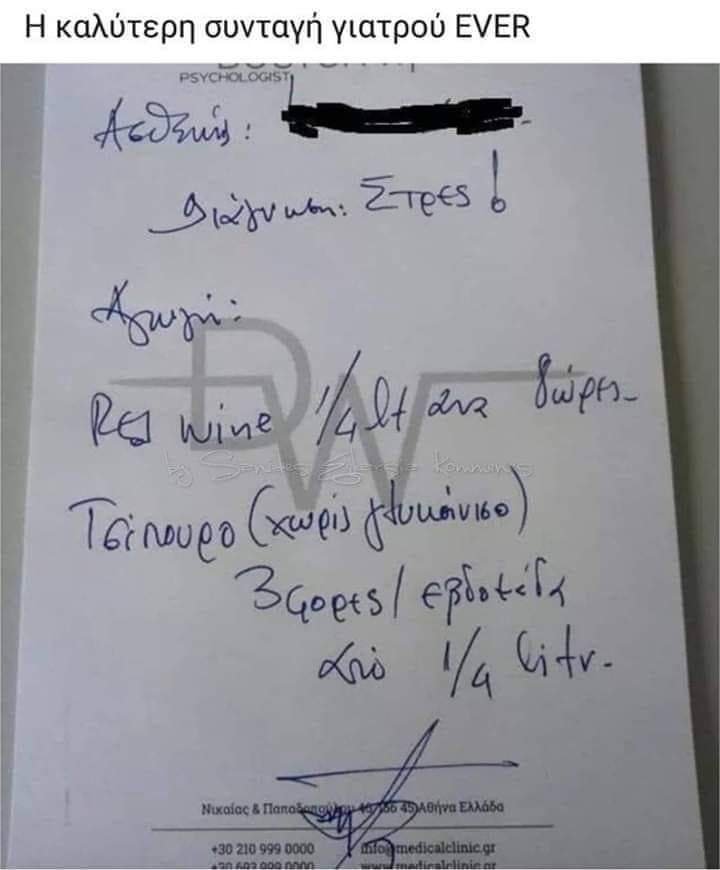 Η καλύτερη συνταγή γιατρού EVER
PSYCHOLOGIST
Ασθενής:
Διάγνωση: Στρες!
Αγωγή:
DW
Red wine 1/4 lt ανα 8ώρες
by
Τσίπουρο (χωρίς γλυκάνισο)
3 φορες / εβδομάδα
από 1/4 litr.
Νικαίας & 45 Αθήνα Ελλάδα
+30 210 999 0000 info@medicalclinic.gr
+30 693 999 0000 www.medicalclinic.gr